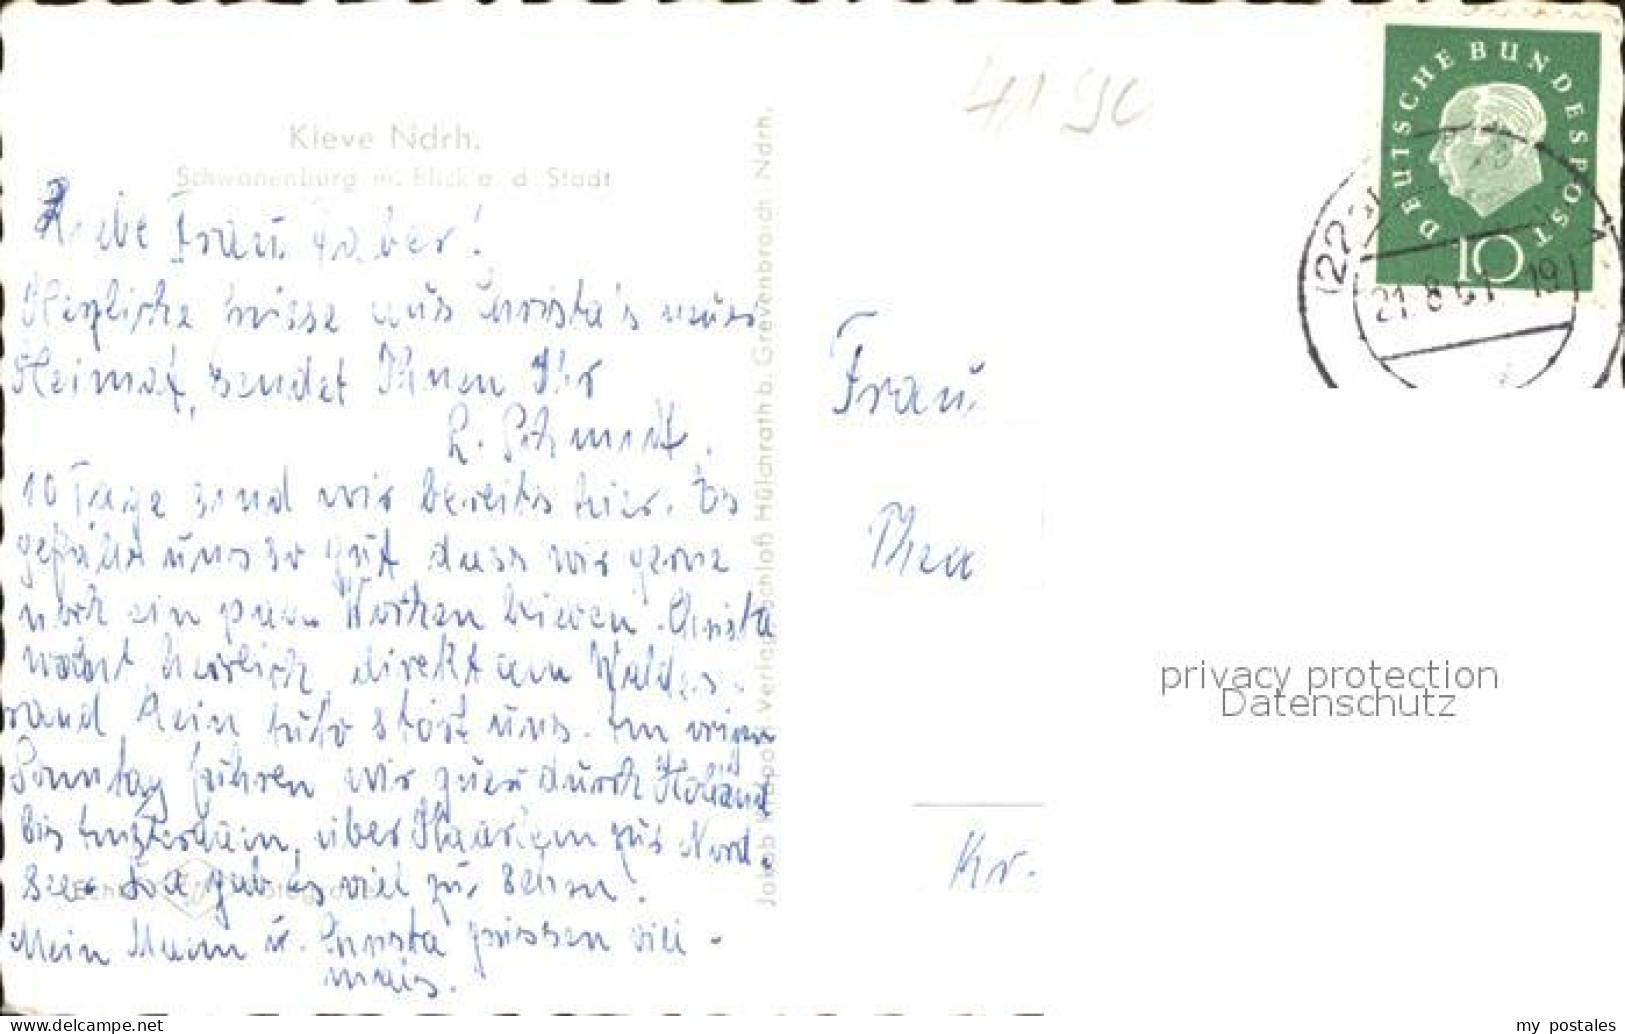 Kleve Ndrh.
Schwanenburg m. Blick a. d. Stadt
Liebe Frau Faber!
Herzliche Grüsse aus Christa's neuer
Heimat, sendet Ihnen Ihr
R. Schmidt.
10 Tage sind wir bereits hier. Es
gefällt uns so gut dass wir gerne
noch ein paar Wochen blieben. Christa
wohnt herrlich, direkt am Waldes-
rand kein Auto stört uns. Am vorigen
Sonntag fuhren wir quer durch Holland
bis Amsterdam, über Haarlem zur Nord-
see. Da gab es viel zu sehen!
Mein Mann u. Christa grüssen viel-
mals.
Jakob Krapohl Verlag Schloß Hülchrath b. Grevenbroich Ndrh.
DEUTSCHE BUNDESPOST
10
(22
21. 8 61 19
Frau
Kr.
privacy protection
Datenschutz
www.delcampe.net
my_postales